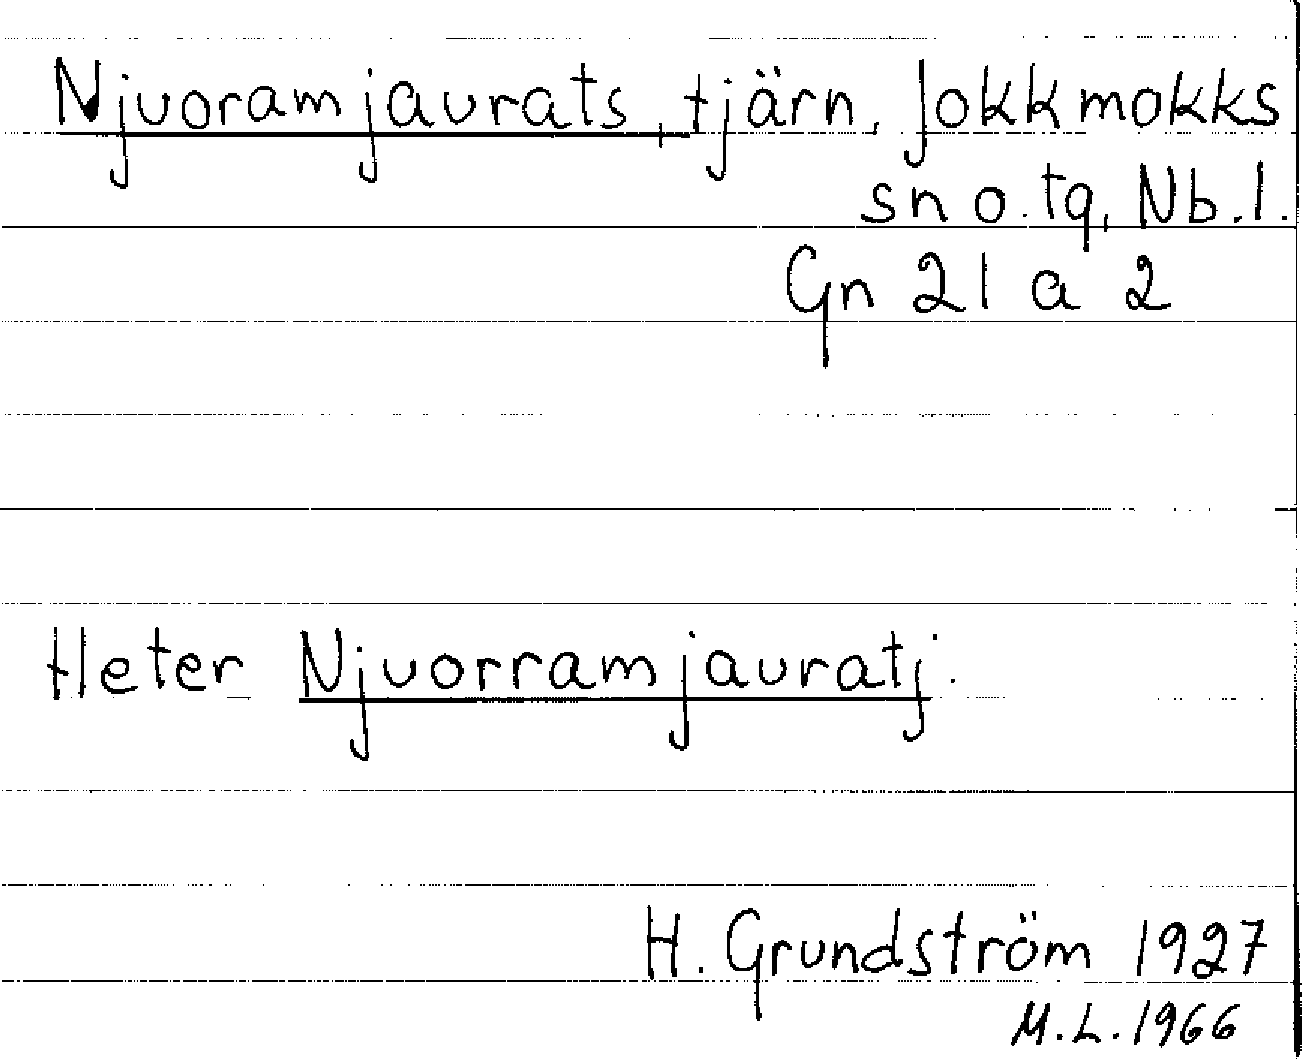 Njuoramjaurats, tjärn, Jokkmokks
sn o. tg, Nb. l.
Gn 21 a 2
Heter Njuorramjauratj.
H. Grundström 1927
M.L. 1966